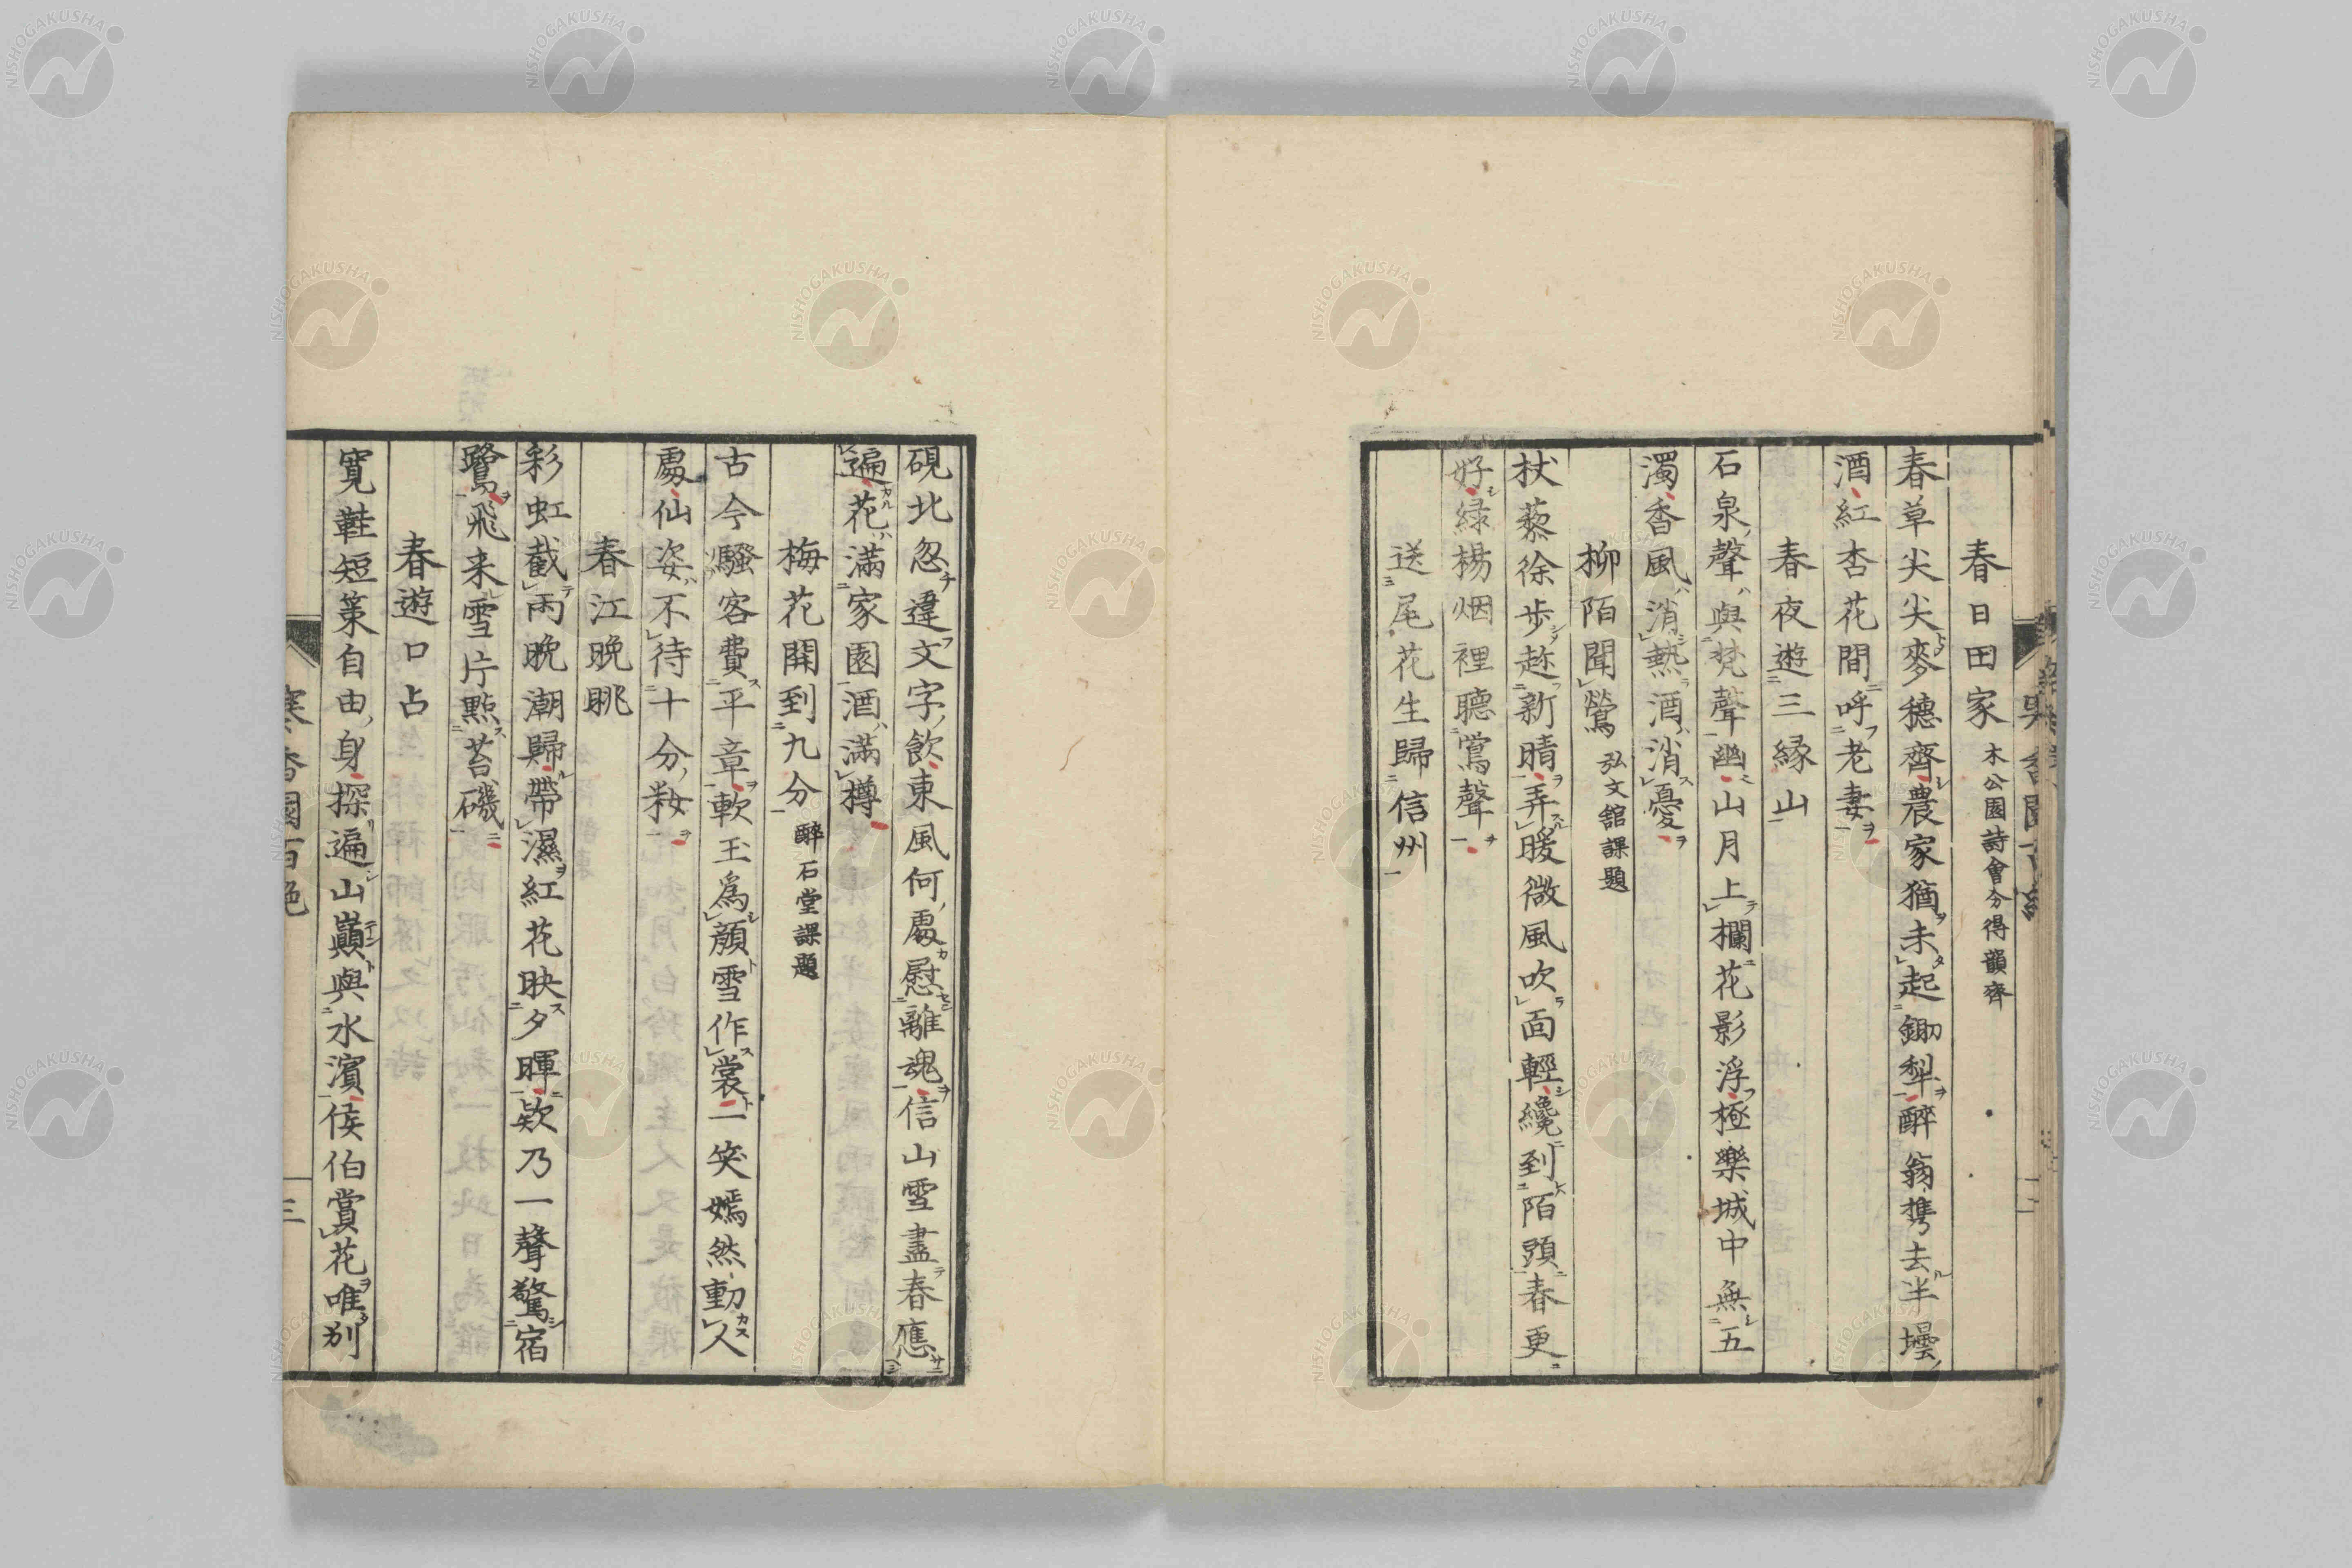 春日田家 木公園詩會分得韻齊
春草尖尖麥穗齊農家猶未起鋤犁醉翁携去半壜
酒紅杏花間呼老妻
春夜遊三縁山
石泉聲與梵聲幽山月上欄花影浮極樂城中無五
濁香風消熱酒消憂
柳陌聞鶯 弘文舘課題
杖藜徐步趂新晴弄暖微風吹面輕纔到陌頭春更
好緑楊烟裡聽鶯聲
送尾花生歸信州
硯北忽違文字飲東風何處慰離魂信山雪盡春應
遍花滿家園酒滿樽
梅花開到九分 醉石堂課題
古今騷客費平章軟玉爲顔雪作裳一笑嫣然動人
處仙姿不待十分粧
春江晚眺
彩虹截雨晚潮歸帶濕紅花映夕暉欵乃一聲驚宿
鷺飛来雪片點苔磯
春遊口占
寬鞋短策自由身探遍山巓與水濱侯伯賞花唯別
寒香園百絶
三
NISHOGAKUSHA